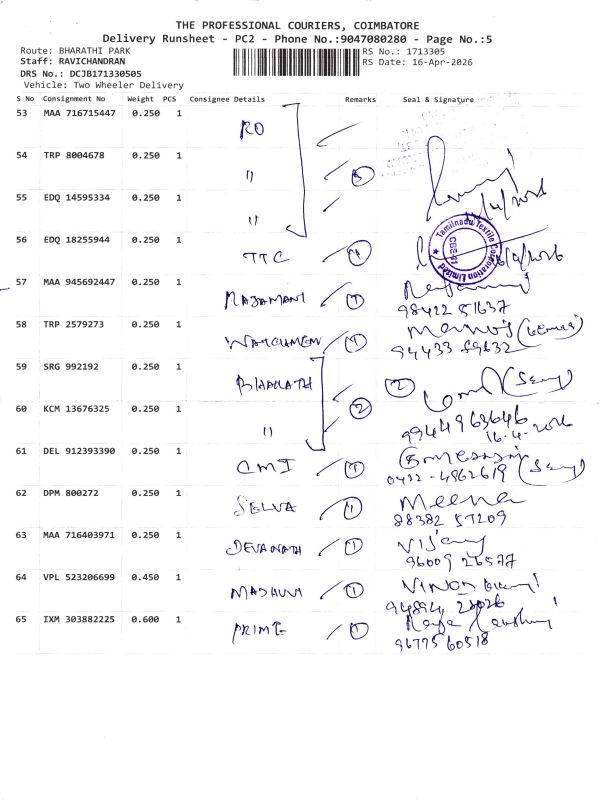 THE PROFESSIONAL COURIERS, COIMBATORE
Delivery Runsheet - PC2 - Phone No.:9047080280 - Page No.:5
Route: BHARATHI PARK
Staff: RAVICHANDRAN
DRS No.: DCJB171330505
Vehicle: Two Wheeler Delivery
RS No.: 1713305
RS Date: 16-Apr-2026
S No Consignment No Weight PCS Consignee Details Remarks Seal & Signature
53 MAA 716715447 0.250 1 RO
54 TRP 8004678 0.250 1 " 3
55 EDQ 14595334 0.250 1 "
56 EDQ 18255944 0.250 1 TTC 1
Tamilnadu Textile Corporation Limited
57 MAA 945692447 0.250 1 RAJAMANI 1
98422 51637
58 TRP 2579273 0.250 1 WATCHMEN 1
94433 89632
59 SRG 992192 0.250 1 BHARATH 2
60 KCM 13676325 0.250 1 " 2
99449 63646
16-4-2026
61 DEL 912393390 0.250 1 CMI 1
0422-4962619
62 DPM 800272 0.250 1 SELVA 1 Meena
88382 57209
63 MAA 716403971 0.250 1 DEVANATH 1
96009 26577
64 VPL 523206699 0.450 1 MADHUVI 1
94894 28026
65 IXM 303882225 0.600 1 PRIME 1
96775 60518